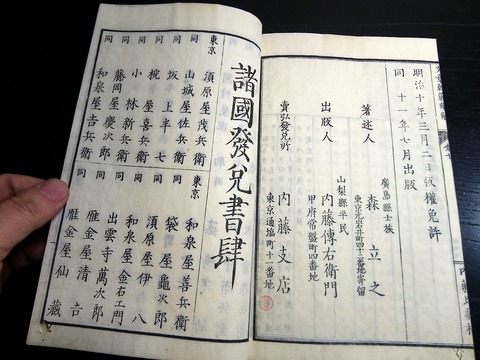 明治十年三月二日版權免許
同 十一年七月出版
廣島縣士族
著述人 森立之
東京元岩井町四十三番地寄留
山梨縣平民
出版人 内藤傳右衛門
甲府常盤町四番地
賣弘發兌所 内藤支店
東京通塩町十一番地
諸國發兌書肆
東京 須原屋茂兵衛
同 山城屋佐兵衛
同 坂上半七
同 椀屋喜兵衛
同 小林新兵衛
同 藤岡屋慶次郎
同 和泉屋吉兵衛
東京 和泉屋善兵衛
同 袋屋亀次郎
同 須原屋伊八
同 和泉屋金右エ門
同 出雲寺萬次郎
同 雁金屋清吉
同 雁金屋仙藏